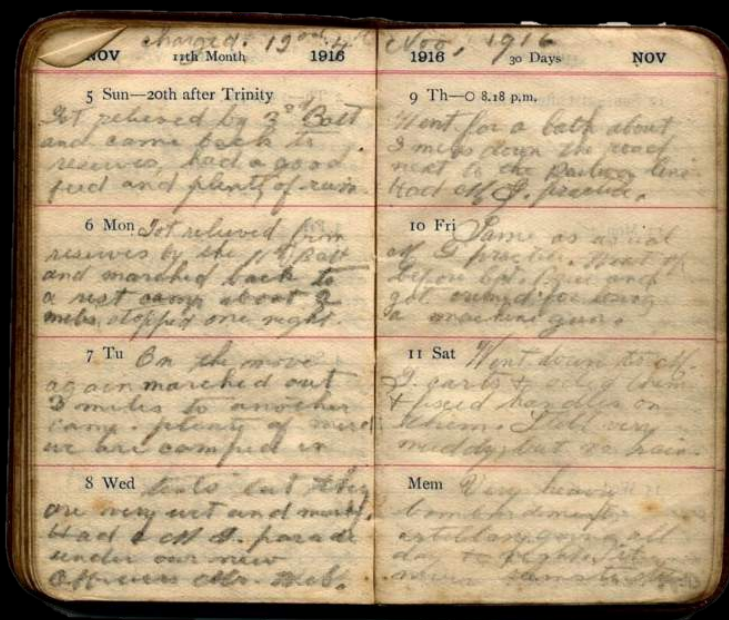 charged. 19
NOV 11th Month 1916
5 Sun—20th after Trinity
Got relieved by 3rd Batt
and came back to
reserves, had a good
feed and plenty of rain.
6 Mon Got relieved from
reserves by the Batt
and marched back to
a rest camp about 2
miles stopped one night.
7 Tu On the move
again marched out
3 miles to another
camp. plenty of mud
we are camped in
8 Wed tents but they
are very wet and muddy.
Had a M G. parade
under our new
Officers Mr.
Nov, 1916
1916 30 Days NOV
9 Th—O 8.18 p.m.
Went for a bath about
3 miles down the road
next to the Railway line
Had M G. practice.
10 Fri Same as usual
M G practice. Went up
before and
got for losing
a machine gun.
11 Sat Went down to M.
G. carts & them
& fixed handles on
them. Still very
muddy, but no rain.
Mem Very heavy
bombardment
artillery going all
day & night. It
never seems to